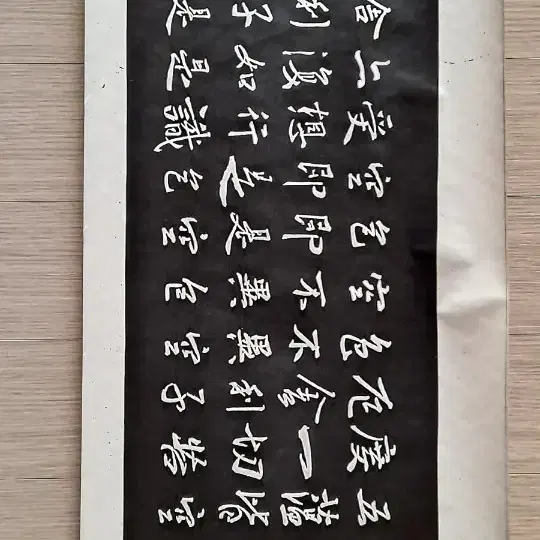 五蘊皆空
度一切苦
厄舍利子
色不異空
空不異色
色即是空
空即是色
受想行識
亦復如是
舍利子是